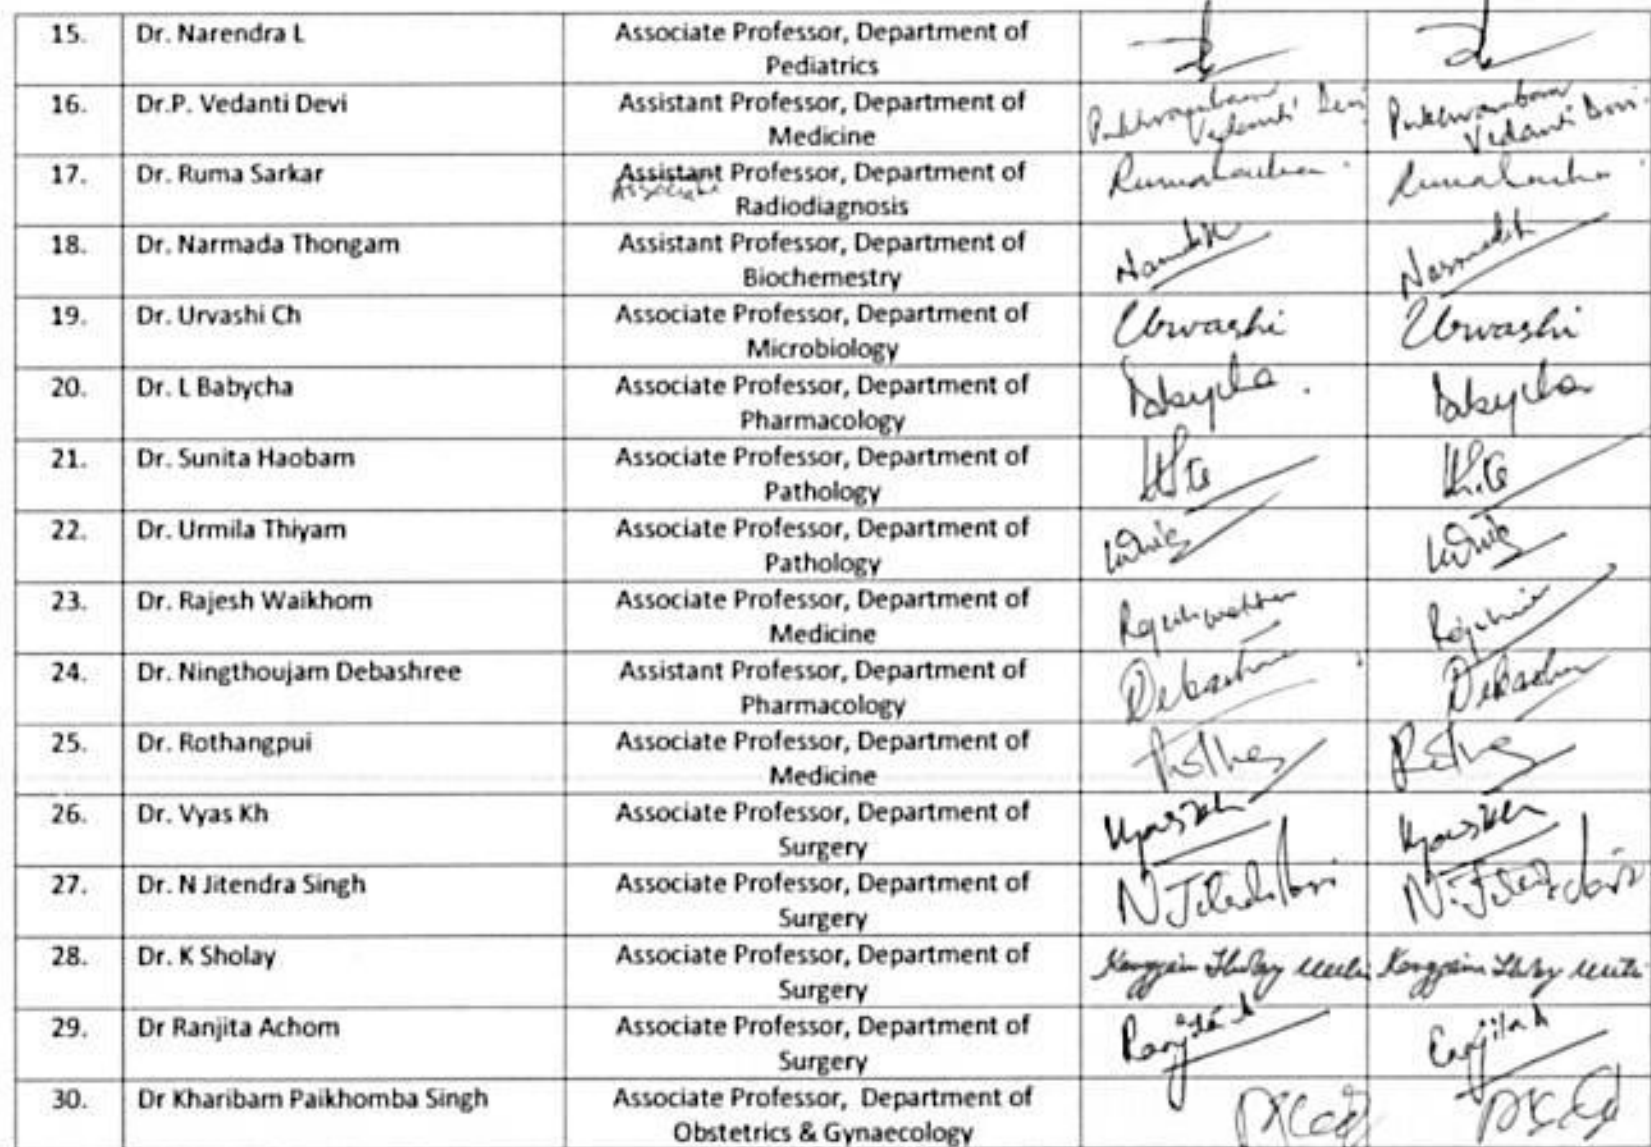 15. Dr. Narendra L Associate Professor, Department of
Pediatrics
16. Dr.P. Vedanti Devi Assistant Professor, Department of
Medicine
Vedanti Devi Vedanti Devi
17. Dr. Ruma Sarkar Assistant Professor, Department of
Associate Radiodiagnosis
18. Dr. Narmada Thongam Assistant Professor, Department of
Biochemestry
19. Dr. Urvashi Ch Associate Professor, Department of Urvashi Urvashi
Microbiology
20. Dr. L Babycha Associate Professor, Department of Babycha Babycha
Pharmacology
21. Dr. Sunita Haobam Associate Professor, Department of
Pathology
22. Dr. Urmila Thiyam Associate Professor, Department of
Pathology
23. Dr. Rajesh Waikhom Associate Professor, Department of
Medicine
24. Dr. Ningthoujam Debashree Assistant Professor, Department of
Pharmacology
25. Dr. Rothangpui Associate Professor, Department of
Medicine
26. Dr. Vyas Kh Associate Professor, Department of Vyas Kh Vyas Kh
Surgery
27. Dr. N Jitendra Singh Associate Professor, Department of
Surgery
28. Dr. K Sholay Associate Professor, Department of
Surgery
29. Dr Ranjita Achom Associate Professor, Department of
Surgery
30. Dr Kharibam Paikhomba Singh Associate Professor, Department of
Obstetrics & Gynaecology